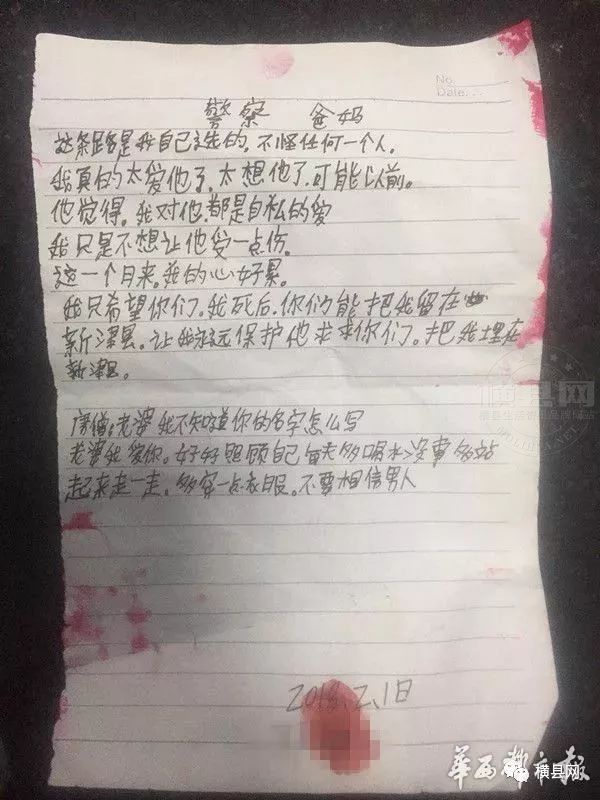 No.
Date...
警察 爸妈
这条路是我自己选的,不怪任何一个人。
我真的太爱他了,太想他了,可能以前。
他觉得,我对他都是自私的爱
我只是不想让他受一点伤。
这一个月来,我的心好累。
我只希望你们,我死后,你们能把我留在
新津县。让我永远保护他求求你们了。把我埋在
新津县。
老婆我不知道你的名字怎么写
老婆我爱你,好好照顾自己每天多喝水没事多站
起来走一走,多穿一点衣服。不要相信男人
2018.2.1日
横县网
华西都市报
横县网